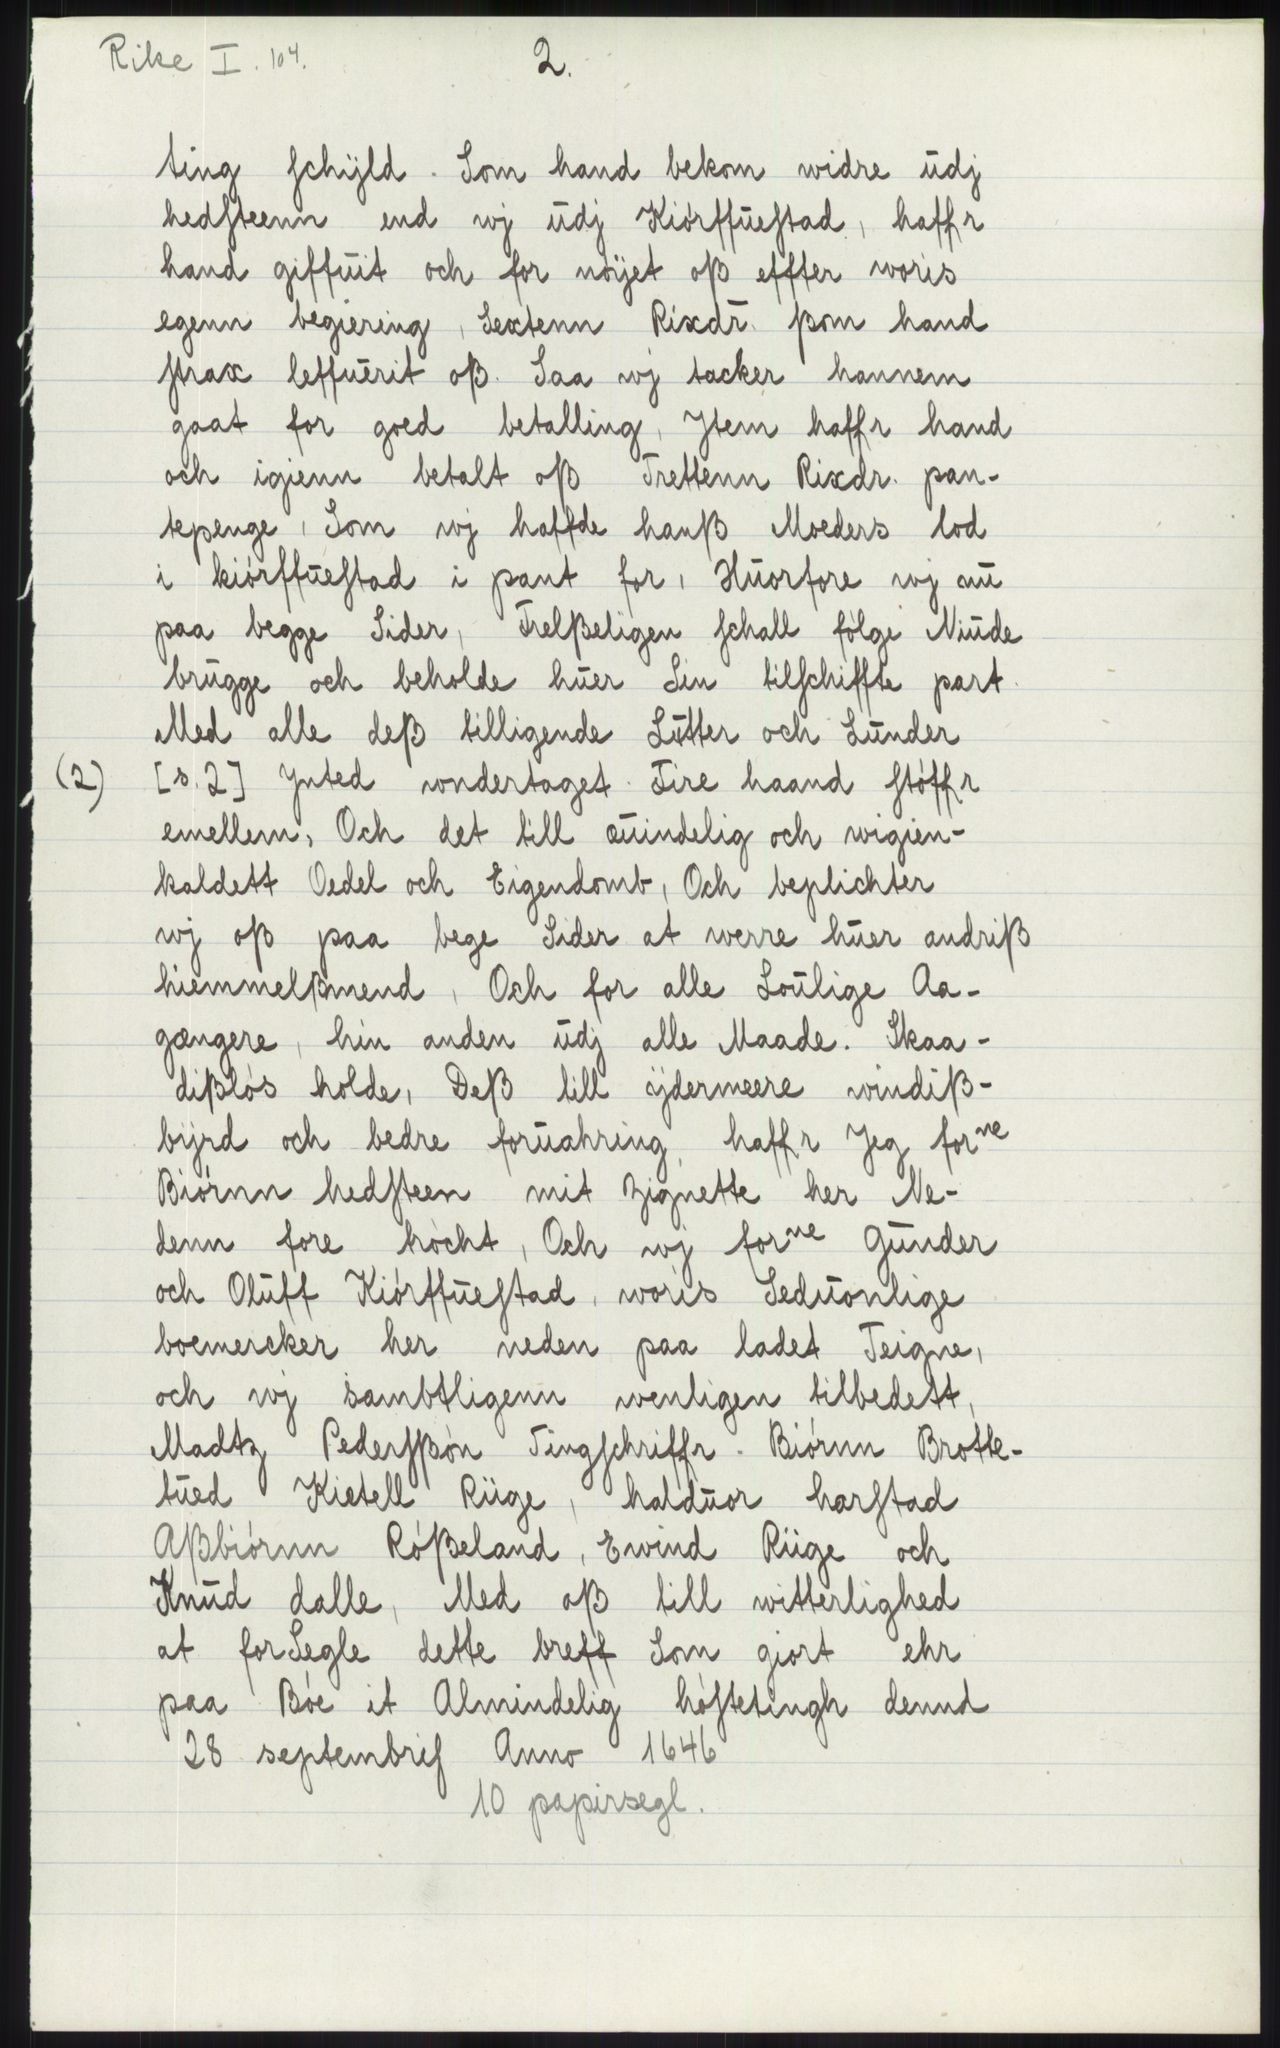 Rike I. 104.
2.
ting schÿld. Som hand bekom widre ŭdj
hedsteenn end wj ŭdj Kiórffŭestad, haffr
hand giffŭit och for nóÿet oß effter woris
egenn begiering, Sextenn Rixdr. ßom hand
strax leffŭerit oß. Saa wj tacker hannem
gaat for goed betalling, Jtem haffr hand
och igienn betalt oß Trettenn Rixdr. pan-
tepenge, Som wj haffde hanß Moeders lod
i kiórffŭestad i pant for, Hŭorfore wj nŭ
paa begge Sider, Frelßeligen schall fólge Niŭde
brŭgge och beholde hŭer Sin tilschiffte part.
Med alle deß tilligende Lŭtter och Lŭnder
(2) [s. 2] Jnted wndertaget. Fire haand stóffr
emellem, Och det till æŭindelig och wigien-
kaldett Oedel och Eigendomb, Och beplichter
wj oß paa bege Sider at werre hŭer andriß
hiemmelßmend, Och for alle Loŭlige Aa-
gængere, hin anden ŭdj alle Maade. Skaa-
dißlós holde, Deß till ÿdermeere windiß-
bÿrd och bedre forŭahring, haffr Jeg forne
Biórnn hedsteen mit Zignette her Ne-
denn fore trócht, Och wj forne Gŭnder
och Olŭff Kiórffŭestad, woris Sedŭonlige
boemercker her neden paa ladet Teigne,
och wj sambtligenn wenligen tilbedett,
Madtz Pedersßón Tingschriffr. Biórnn Brotte-
tŭed Kietell Riige, haldŭor harstad
Aßbiórnn Róßeland, Ewind Riige och
Knŭd dalle, Med oß till witterlighed
at forSegle dette breff Som giort ehr
paa Bóe it Almindelig hóstetingh dennd
28 septembris Anno 1646
10 papirsegl.